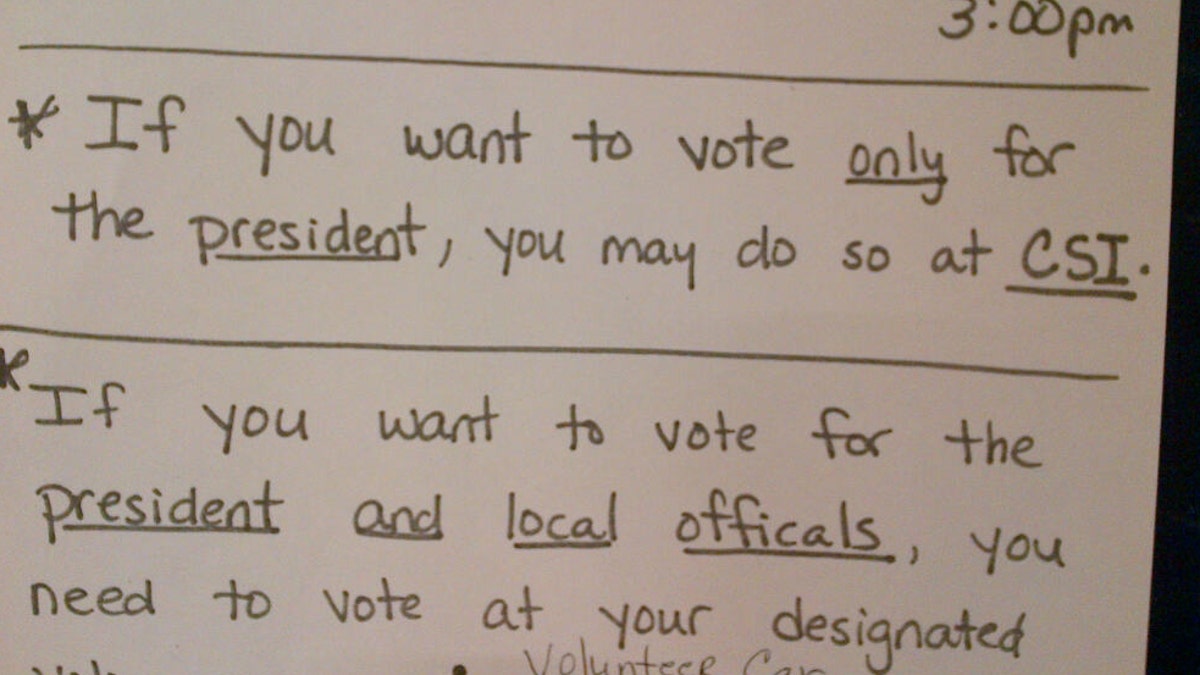 3:00pm
* If you want to vote only for
the president, you may do so at CSI.
* If you want to vote for the
president and local officals, you
need to vote at your designated
Volunteer